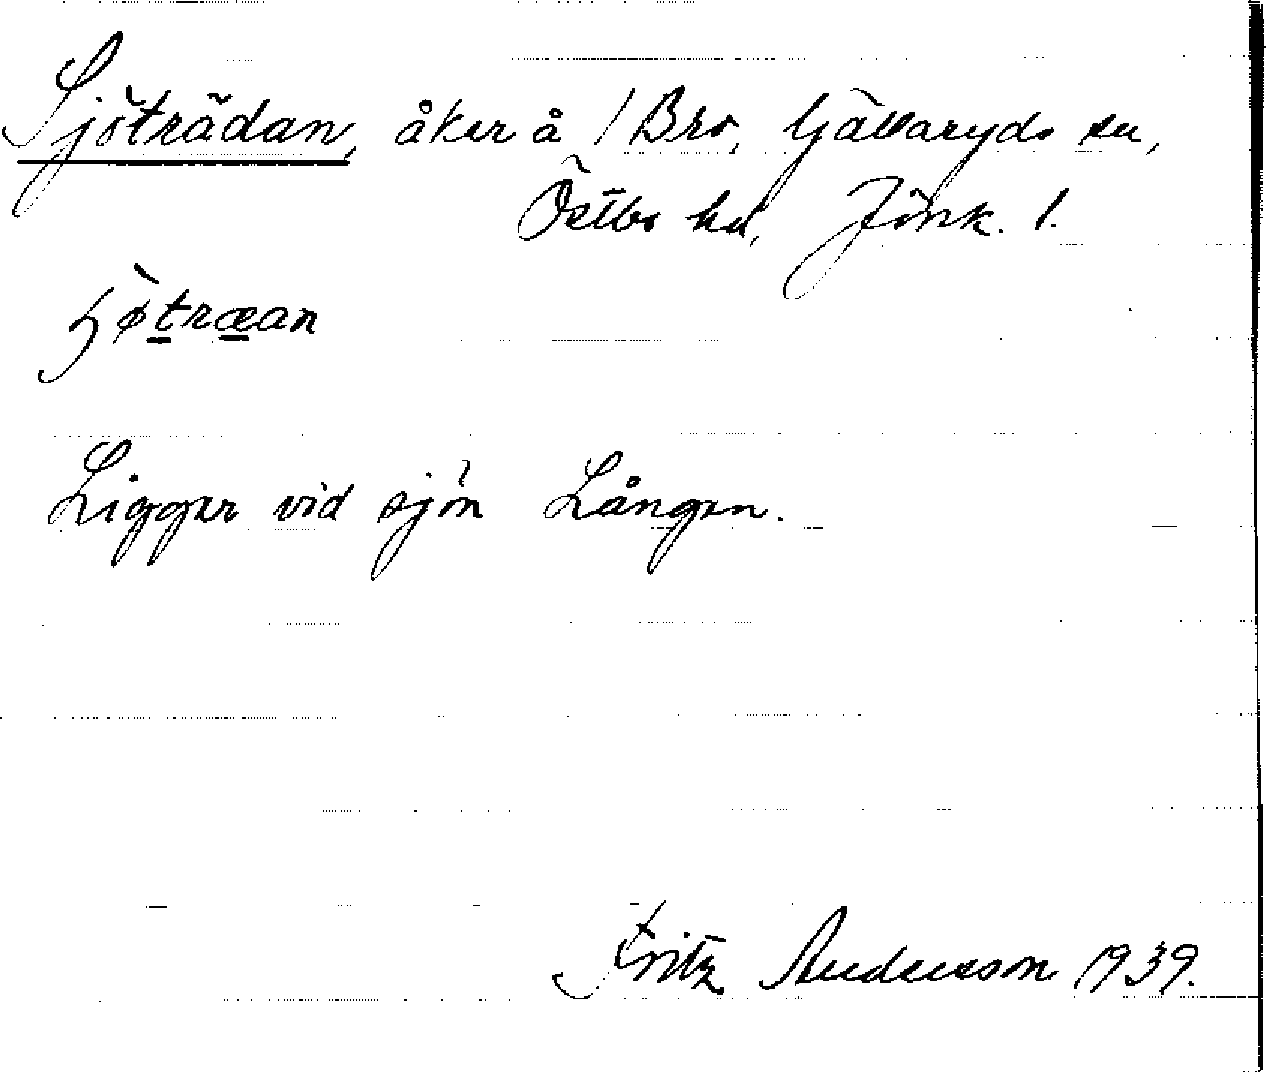 Sjöträdan, åker å / Bro, Gällaryds sn,
Östbo hd, Jönk. l.
ɧø̀træan
Ligger vid sjön Lången.
Fritz Andersson 1939.